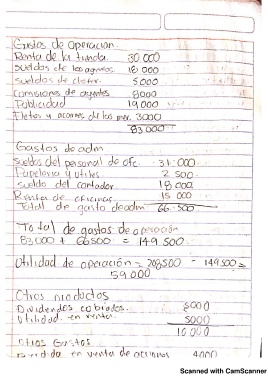 Gastos de operacion.
Renta de la tienda 30 000
Sueldos de los agentes 18 000
Sueldos de chofer. 5 000
Comisiones de agentes 8000
Publicidad 19,000
Fletes y acarreos de las mer. 3000
83 000
Gastos de adm
Sueldos del personal de ofc. 31.000
Papeleria y utiles 2 500
sueldo del contador 18 000
Renta de oficinas 15 000
Total de gasto de adm 66 500
Total de gastos de operación
83,000 + 66500 = 149 500
Utilidad de operación = 208500 - 149500 =
59 000
Otros productos
Dividendos cobrados. 5000
Utilidad en ventas 5000
10 000
Otros Gastos
Perdida en venta de acciones 4000
Scanned with CamScanner